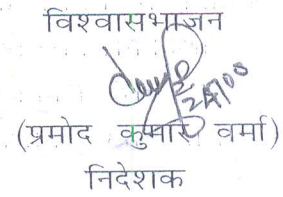 विश्वासभाजन
(प्रमोद कुमार वर्मा)
निदेशक